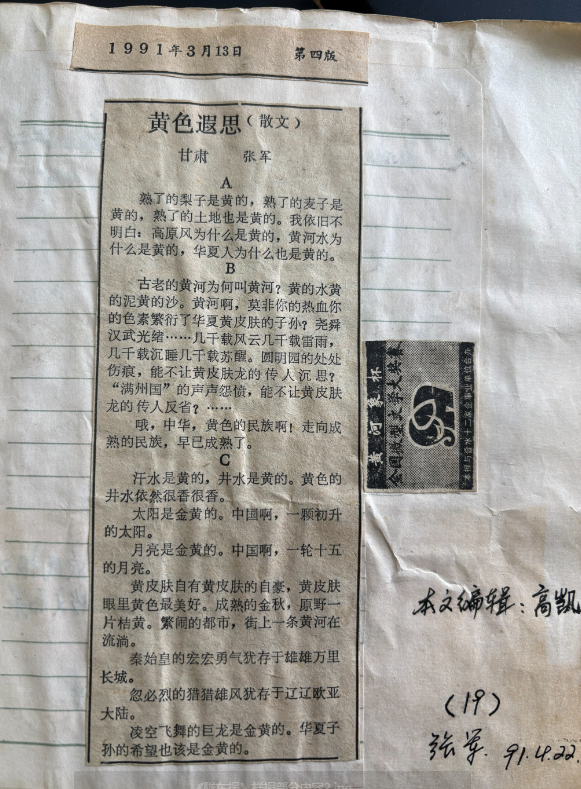 1991年3月13日　第四版
黄色遐思（散文）
甘肃　张军
A
熟了的梨子是黄的，熟了的麦子是
黄的，熟了的土地也是黄的。我依旧不
明白：高原风为什么是黄的，黄河水为
什么是黄的，华夏人为什么也是黄的。
B
古老的黄河为何叫黄河？黄的水黄
的泥黄的沙。黄河啊，莫非你的热血你
的色素繁衍了华夏黄皮肤的子孙？尧舜
汉武光绪……几千载风云几千载雷雨，
几千载沉睡几千载苏醒。圆明园的处处
伤痕，能不让黄皮肤龙的传人沉思？
“满州国”的声声怨愤，能不让黄皮肤
龙的传人反省？……
哦，中华，黄色的民族啊！走向成
熟的民族，早已成熟了。
C
汗水是黄的，井水是黄的。黄色的
井水依然很香很香。
太阳是金黄的。中国啊，一颗初升
的太阳。
月亮是金黄的。中国啊，一轮十五
的月亮。
黄皮肤自有黄皮肤的自豪，黄皮肤
眼里黄色最美好。成熟的金秋，原野一
片桔黄。繁闹的都市，街上一条黄河在
流淌。
秦始皇的宏宏勇气犹存于雄雄万里
长城。
忽必烈的猎猎雄风犹存于辽辽欧亚
大陆。
凌空飞舞的巨龙是金黄的。华夏子
孙的希望也该是金黄的。
黄河象杯
全国微型文学大奖赛
本文编辑：高凯
（19）
张军．91.4.22.